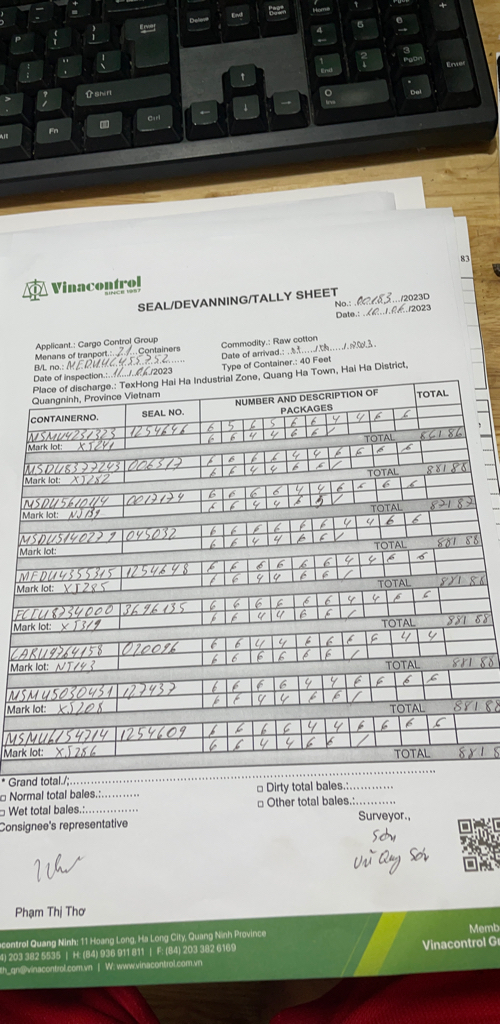 Vinacontrol
SINCE 1957
SEAL/DEVANNING/TALLY SHEET
No.: 00183 /2023D
Date.: 10 / 06 /2023
Applicant.: Cargo Control Group
Commodity.: Raw cotton
Menans of tranport.: 21 Containers
Date of arrivad.:
B/L no.: MEDU4C455252
Type of Container.: 40 Feet
Date of inspection.: 11 / 06 /2023
Place of discharge.: TexHong Hai Ha Industrial Zone, Quang Ha Town, Hai Ha District,
Quangninh, Province Vietnam
CONTAINERNO. SEAL NO. NUMBER AND DESCRIPTION OF PACKAGES TOTAL
MSMU4231323 1254646 6 5 6 5 6 6 4 4 6 6
6 6 4 4 6 6 /
Mark lot: XJ241 TOTAL 86 / 86
MSDU8377243 006517 6 6 6 6 4 4 6 6 6 6
6 6 4 4 6 6 /
Mark lot: XJ282 TOTAL 88 / 88
MSDU561044 0017174 6 6 6 6 4 4 6 6 6 6
6 6 4 4 6 5 /
Mark lot: NJ139 TOTAL 87 / 87
MSDU5140279 045032 6 6 6 6 6 6 4 4 6 6
6 6 4 4 6 6 /
Mark lot: TOTAL 88 / 88
MEDU4355315 1254648 6 6 6 6 6 6 4 4 6 6
6 6 4 4 6 6 /
Mark lot: XJ285 TOTAL 88 / 88
FCIU8734000 3696135 6 6 6 6 6 6 4 4 6 6
6 6 4 4 6 6 /
Mark lot: XJ319 TOTAL 88 / 88
CARU9764158 020096 6 6 4 4 6 6 6 6 4 4
6 6 6 6 6 6 /
Mark lot: NJ143 TOTAL 88 / 88
MSMU5030451 127437 6 6 6 6 4 4 6 6 6 6
6 6 4 4 6 6 /
Mark lot: XJ208 TOTAL 88 / 88
MSMU6154714 1254609 6 6 6 6 4 4 6 6 6 6
6 6 4 4 6 6 /
Mark lot: XJ286 TOTAL 88 / 8
* Grand total./:
□ Normal total bales.:
□ Dirty total bales.:
□ Wet total bales.:
□ Other total bales.:
Consignee's representative
Surveyor.,
Sơn
Vũ Quý Sơn
Phạm Thị Thơ
acontrol Quang Ninh: 11 Hoang Long, Ha Long City, Quang Ninh Province
4) 203 382 5535 | H: (84) 936 911 811 | F: (84) 203 382 6169
th_qn@vinacontrol.com.vn | W: www.vinacontrol.com.vn
Memb
Vinacontrol G
83
Enter
Shift
Ctrl
Fn
Alt
Delete
End
Page Down
Home
PgDn
Enter
Del
Ins